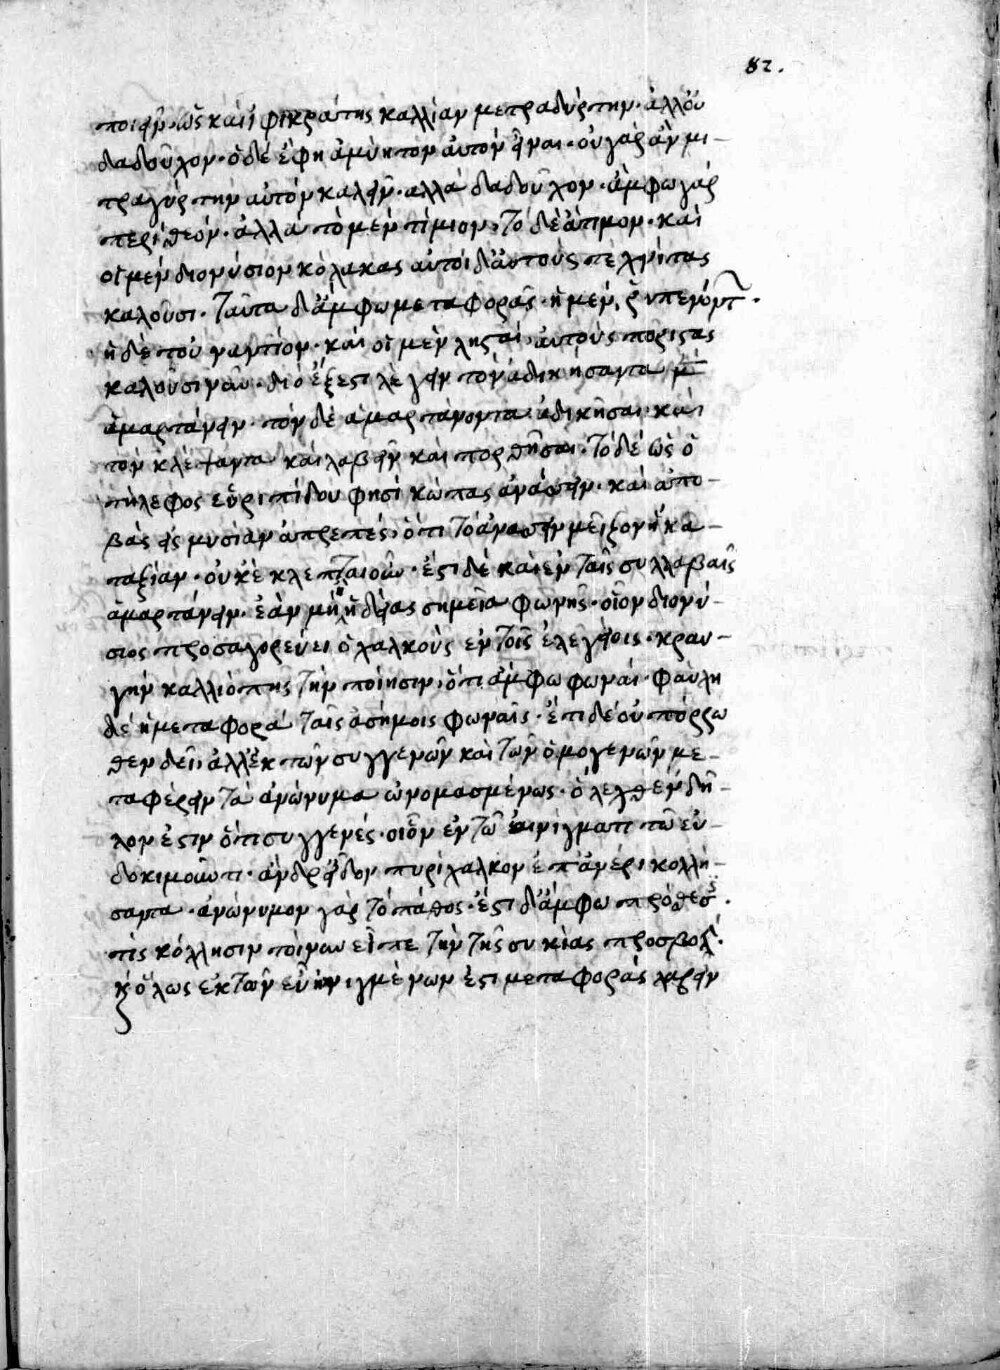 82.
ποιεῖν. ὡς καὶ ἰφικράτης καλλίαν μετραδύρτην. ἀλλ' οὐ
δαδοῦχον. ὁ δὲ ἔφη ἀμύητον αὐτὸν εἶναι. οὐ γὰρ ἂν μι-
τραγύρτην αὐτὸν καλεῖν. αλλὰ δαδοῦχον. ἄμφω γὰρ
περὶ θεόν. ἀλλὰ τὸ μὲν τίμιον, τὸ δὲ ἄτιμον. καὶ
οἱ μὲν διονύσιον κόλακας αὐτοὶ δ' αὑτοὺς τεχνίτας
καλοῦσι. ταῦτα δ' ἄμφω μεταφοραί. ἡ μὲν
ἡ δὲ τοὐναντίον. καὶ οἱ μὲν λῃσταὶ αὐτοὺς ποριστὰς
καλοῦσι νῦν. διὸ ἔξεστι λέγειν τὸν ἀδικήσαντα μὲν
ἁμαρτάνειν. τὸν δὲ ἁμαρτάνοντα ἀδικῆσαι. καὶ
τὸν κλέψαντα καὶ λαβεῖν καὶ πορθῆσαι. τὸ δὲ ὡς ὁ
τήλεφος εὐριπίδου φησὶ κώπας ἀνάσσειν. καὶ ἀπο-
βὰς εἰς μυσίαν ἀπρεπές. ὅτι τὸ ἀνάσσειν μεῖζον ἢ κα-
ταξίαν. οὐ κέκλεπται οὖν. ἔστι δὲ καὶ ἐν ταῖς συλλαβαῖς
ἁμαρτάνειν. ἐὰν μὴ ἡδείας σημεῖα φωνῆς. οἷον διονύ-
σιος προσαγορεύει ὁ χαλκοῦς ἐν τοῖς ἐλεγείοις. κραυ-
γὴν καλλιόπης τὴν ποίησιν, ὅτι ἄμφω φωναί. φαύλη
δὲ ἡ μεταφορὰ ταῖς ἀσήμοις φωναῖς. ἔτι δὲ οὐ πόρρω
θεν δεῖ, ἀλλ' ἐκ τῶν συγγενῶν καὶ τῶν ὁμογενῶν με-
ταφέρειν τὰ ἀνώνυμα ὠνομασμένως. ὃ λεχθὲν δῆ-
λον ἐστιν ὅτι συγγενές. οἷον ἐν τῷ αἰνίγματι τῷ εὐ-
δοκιμοῦντι. ἄνδρ' εἶδον πυρὶ χαλκὸν ἐπ' ἀνέρι κολλή-
σαντα. ἀνώνυμον γὰρ τὸ πάθος. ἔστι δ' ἄμφω πρόθεσ.
τις κόλλησιν τοίνυν εἶπε τὴν τῆς συκίας προσβολ.
καὶ ὅλως ἐκ τῶν εὖ ἠνιγμένων ἔστι μεταφορὰς